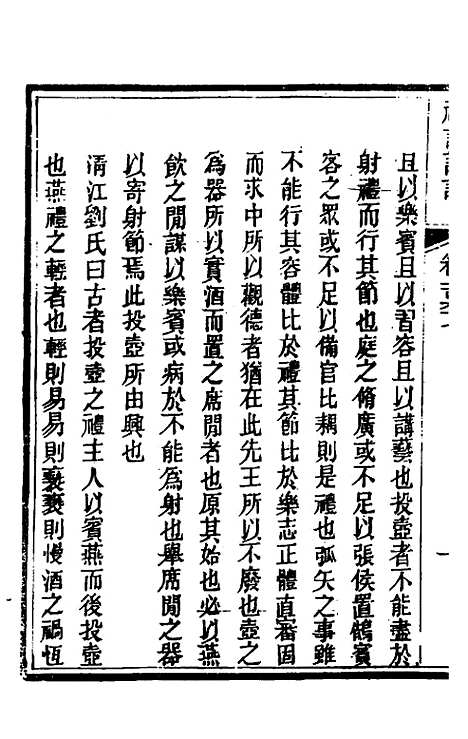 且以樂賓且以習容且以講藝也投壺者不能盡於
射禮而行其節也庭之脩廣或不足以張侯置鵠賓
客之眾或不足以備官比耦則是禮也弧矢之事雖
不能行其容體比於禮其節比於樂志正體直審固
而求中所以觀德者猶在此先王所以不廢也壺之
為器所以實酒而置之席閒者也原其始也必以燕
飲之閒謀以樂賓或病於不能為射也舉席閒之器
以寄射節焉此投壺所由興也
清江劉氏曰古者投壺之禮主人以賓燕而後投壺
也燕禮之輕者也輕則易易則褻褻則慢酒之禍恆